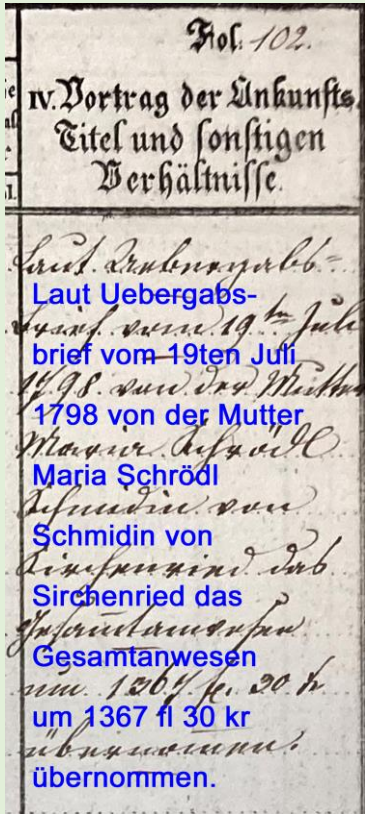 Fol. 102.
IV. Vortrag der Ankunfts-
Titel und sonstigen
Verhältnisse.
Laut Uebergabs=
Laut Uebergabs-
brief vom 19ten Juli
brief vom 19ten Juli
1798 von der Mutter
1798 von der Mutter
Maria Schrödl
Maria Schrödl
Schmidin von
Schmidin von
Sirchenried das
Sirchenried das
Gesamtanwesen
Gesamtanwesen
um 1367 fl. 30 kr
um 1367 fl 30 kr
übernomen.
übernommen.